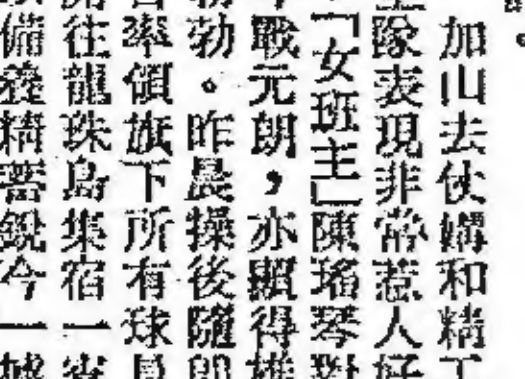 加山去仗媾和精工
隊表現非常惹人好
「女班主」陳瑤琴對
戰元朗，亦顯得雄
勃。昨晨操後隨即
率領旗下所有球員
往龍珠島集宿一
備養精蓄銳今一